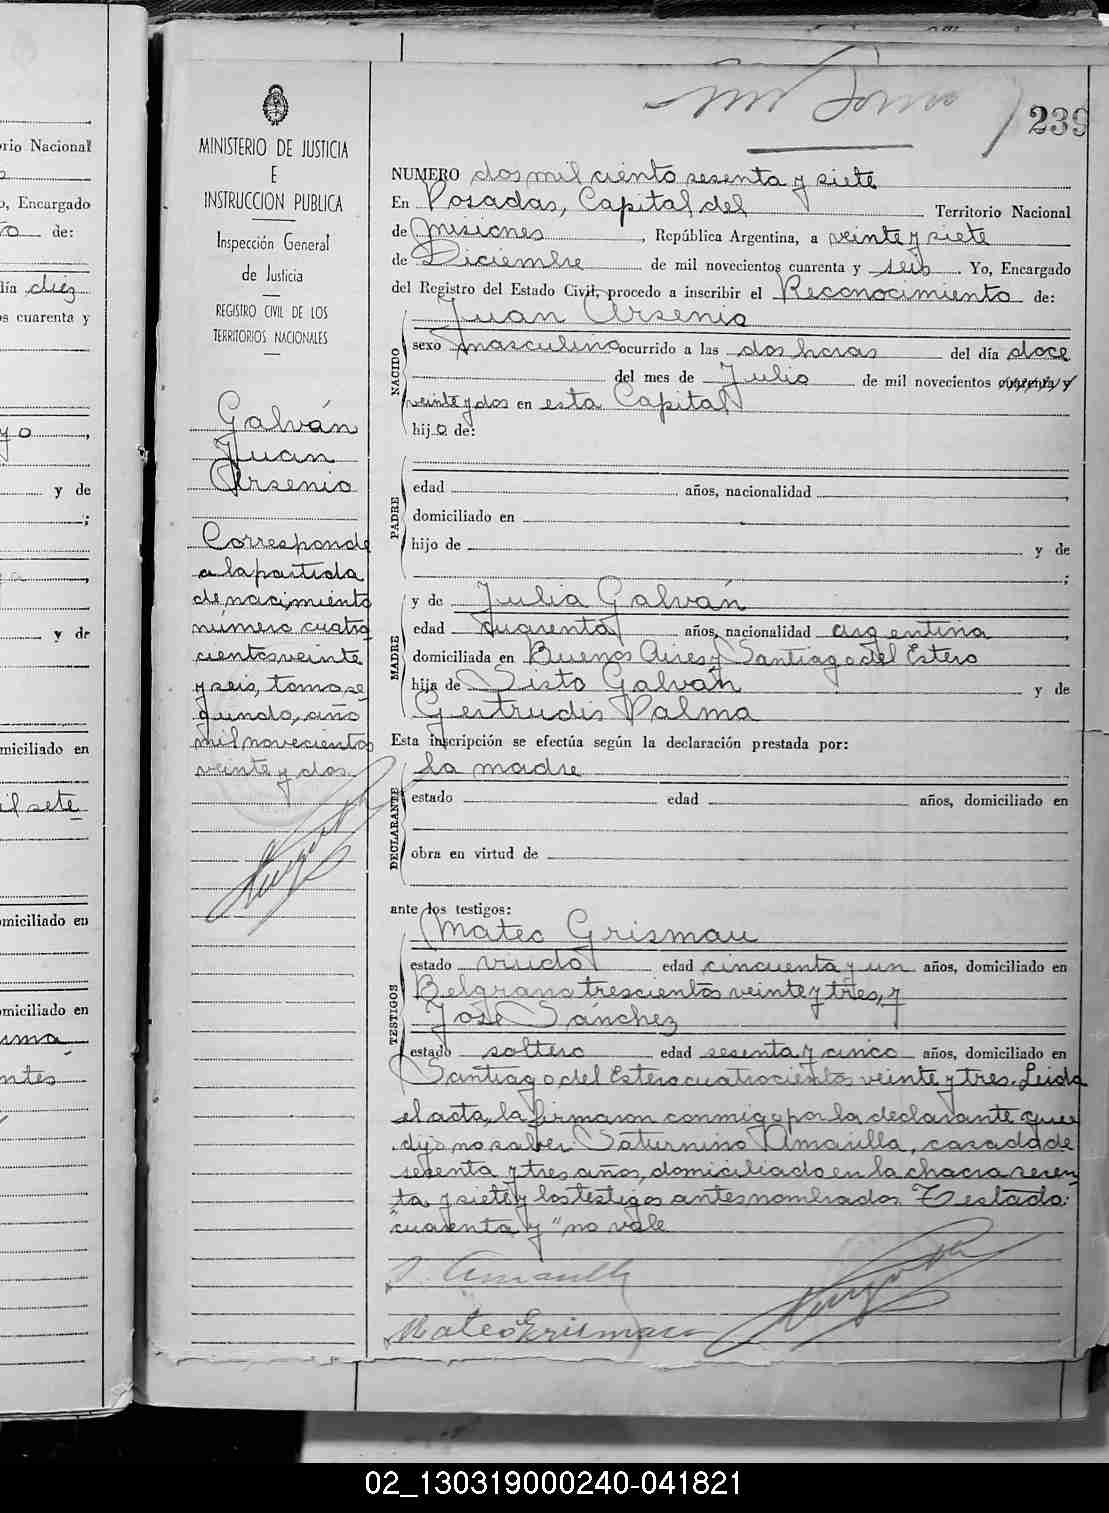 rio Nacional
o, Encargado
de:
día diez
os cuarenta y
yo
y de
y de
miciliado en
il sete
omiciliado en
omiciliado en
239
MINISTERIO DE JUSTICIA
E
INSTRUCCION PUBLICA
Inspección General
de Justicia
REGISTRO CIVIL DE LOS
TERRITORIOS NACIONALES
Galván
Juan
Arsenio
Corresponde
a la partida
de nacimiento
número cuatro
cientos veinte
y seis, tomo se
gundo, año
mil novecientos
veinte y dos.
NUMERO dos mil ciento sesenta y siete
En Posadas, Capital del Territorio Nacional
de Misiones, República Argentina, a veinte y siete
de Diciembre de mil novecientos cuarenta y seis. Yo, Encargado
del Registro del Estado Civil, procedo a inscribir el Reconocimiento de:
Juan Arsenio
NACIDO
sexo masculino ocurrido a las dos horas del día doce
del mes de Julio de mil novecientos cuarenta y
veinte y dos en esta Capital
hijo de:
PADRE
edad años, nacionalidad
domiciliado en
hijo de y de
;
MADRE
y de Julia Galván
edad cuarenta años, nacionalidad argentina
domiciliada en Buenos Aires y Santiago del Estero
hija de Sisto Galván y de
Gertrudis Palma
Esta inscripción se efectúa según la declaración prestada por:
DECLARANTE
la madre
estado edad años, domiciliado en
obra en virtud de
ante los testigos:
TESTIGOS
Mateo Grismau
estado viudo edad cincuenta y un años, domiciliado en
Belgrano trescientos veinte y tres, y
José Sánchez
estado soltero edad sesenta y cinco años, domiciliado en
Santiago del Estero cuatrocientos veinte y tres. Leida
el acta, la firmaron conmigo por la declarante que
dijo no saber Saturnino Amarilla, casado de
sesenta y tres años, domiciliado en la chacra sesen
ta y siete y los testigos antes nombrados. Testado:
"cuarenta y" no vale
S. Amarilla
Mateo Grismau
02_130319000240-041821